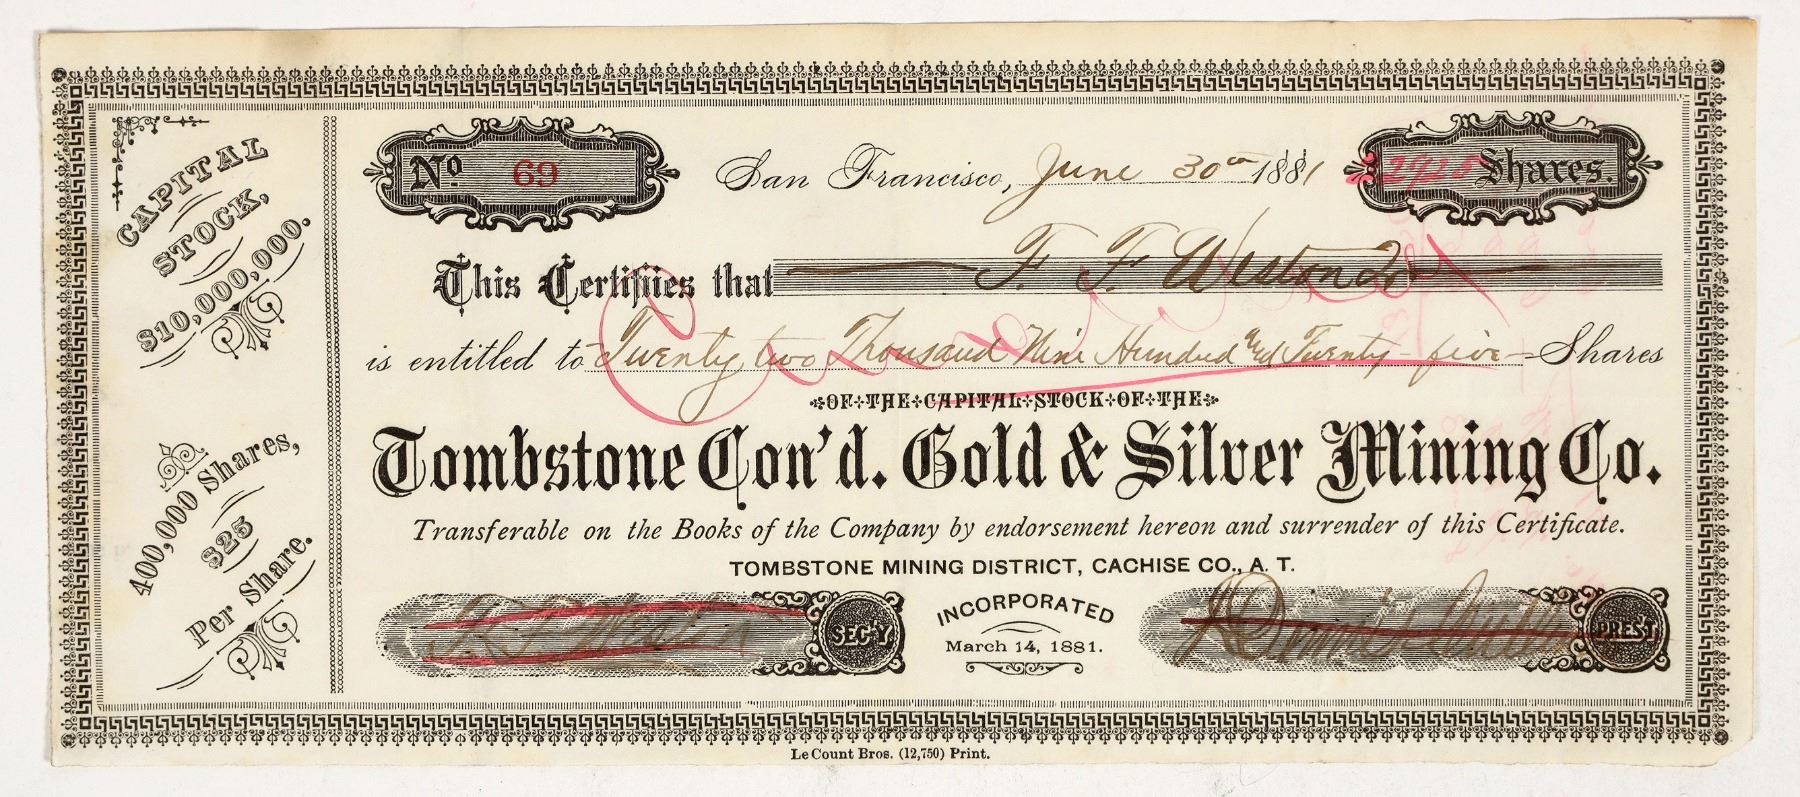 CAPITAL
STOCK,
$10,000,000.
400,000 Shares,
$25
Per Share.
No 69
San Francisco, June 30th 1881
2925 Shares.
This Certifies that F. F. Weston
is entitled to Twenty two Thousand Nine Hundred and Twenty-five Shares
OF THE CAPITAL STOCK OF THE
Tombstone Con'd. Gold & Silver Mining Co.
Transferable on the Books of the Company by endorsement hereon and surrender of this Certificate.
TOMBSTONE MINING DISTRICT, CACHISE CO., A. T.
SEC'Y
INCORPORATED
March 14, 1881.
PREST
Le Count Bros. (12,750) Print.